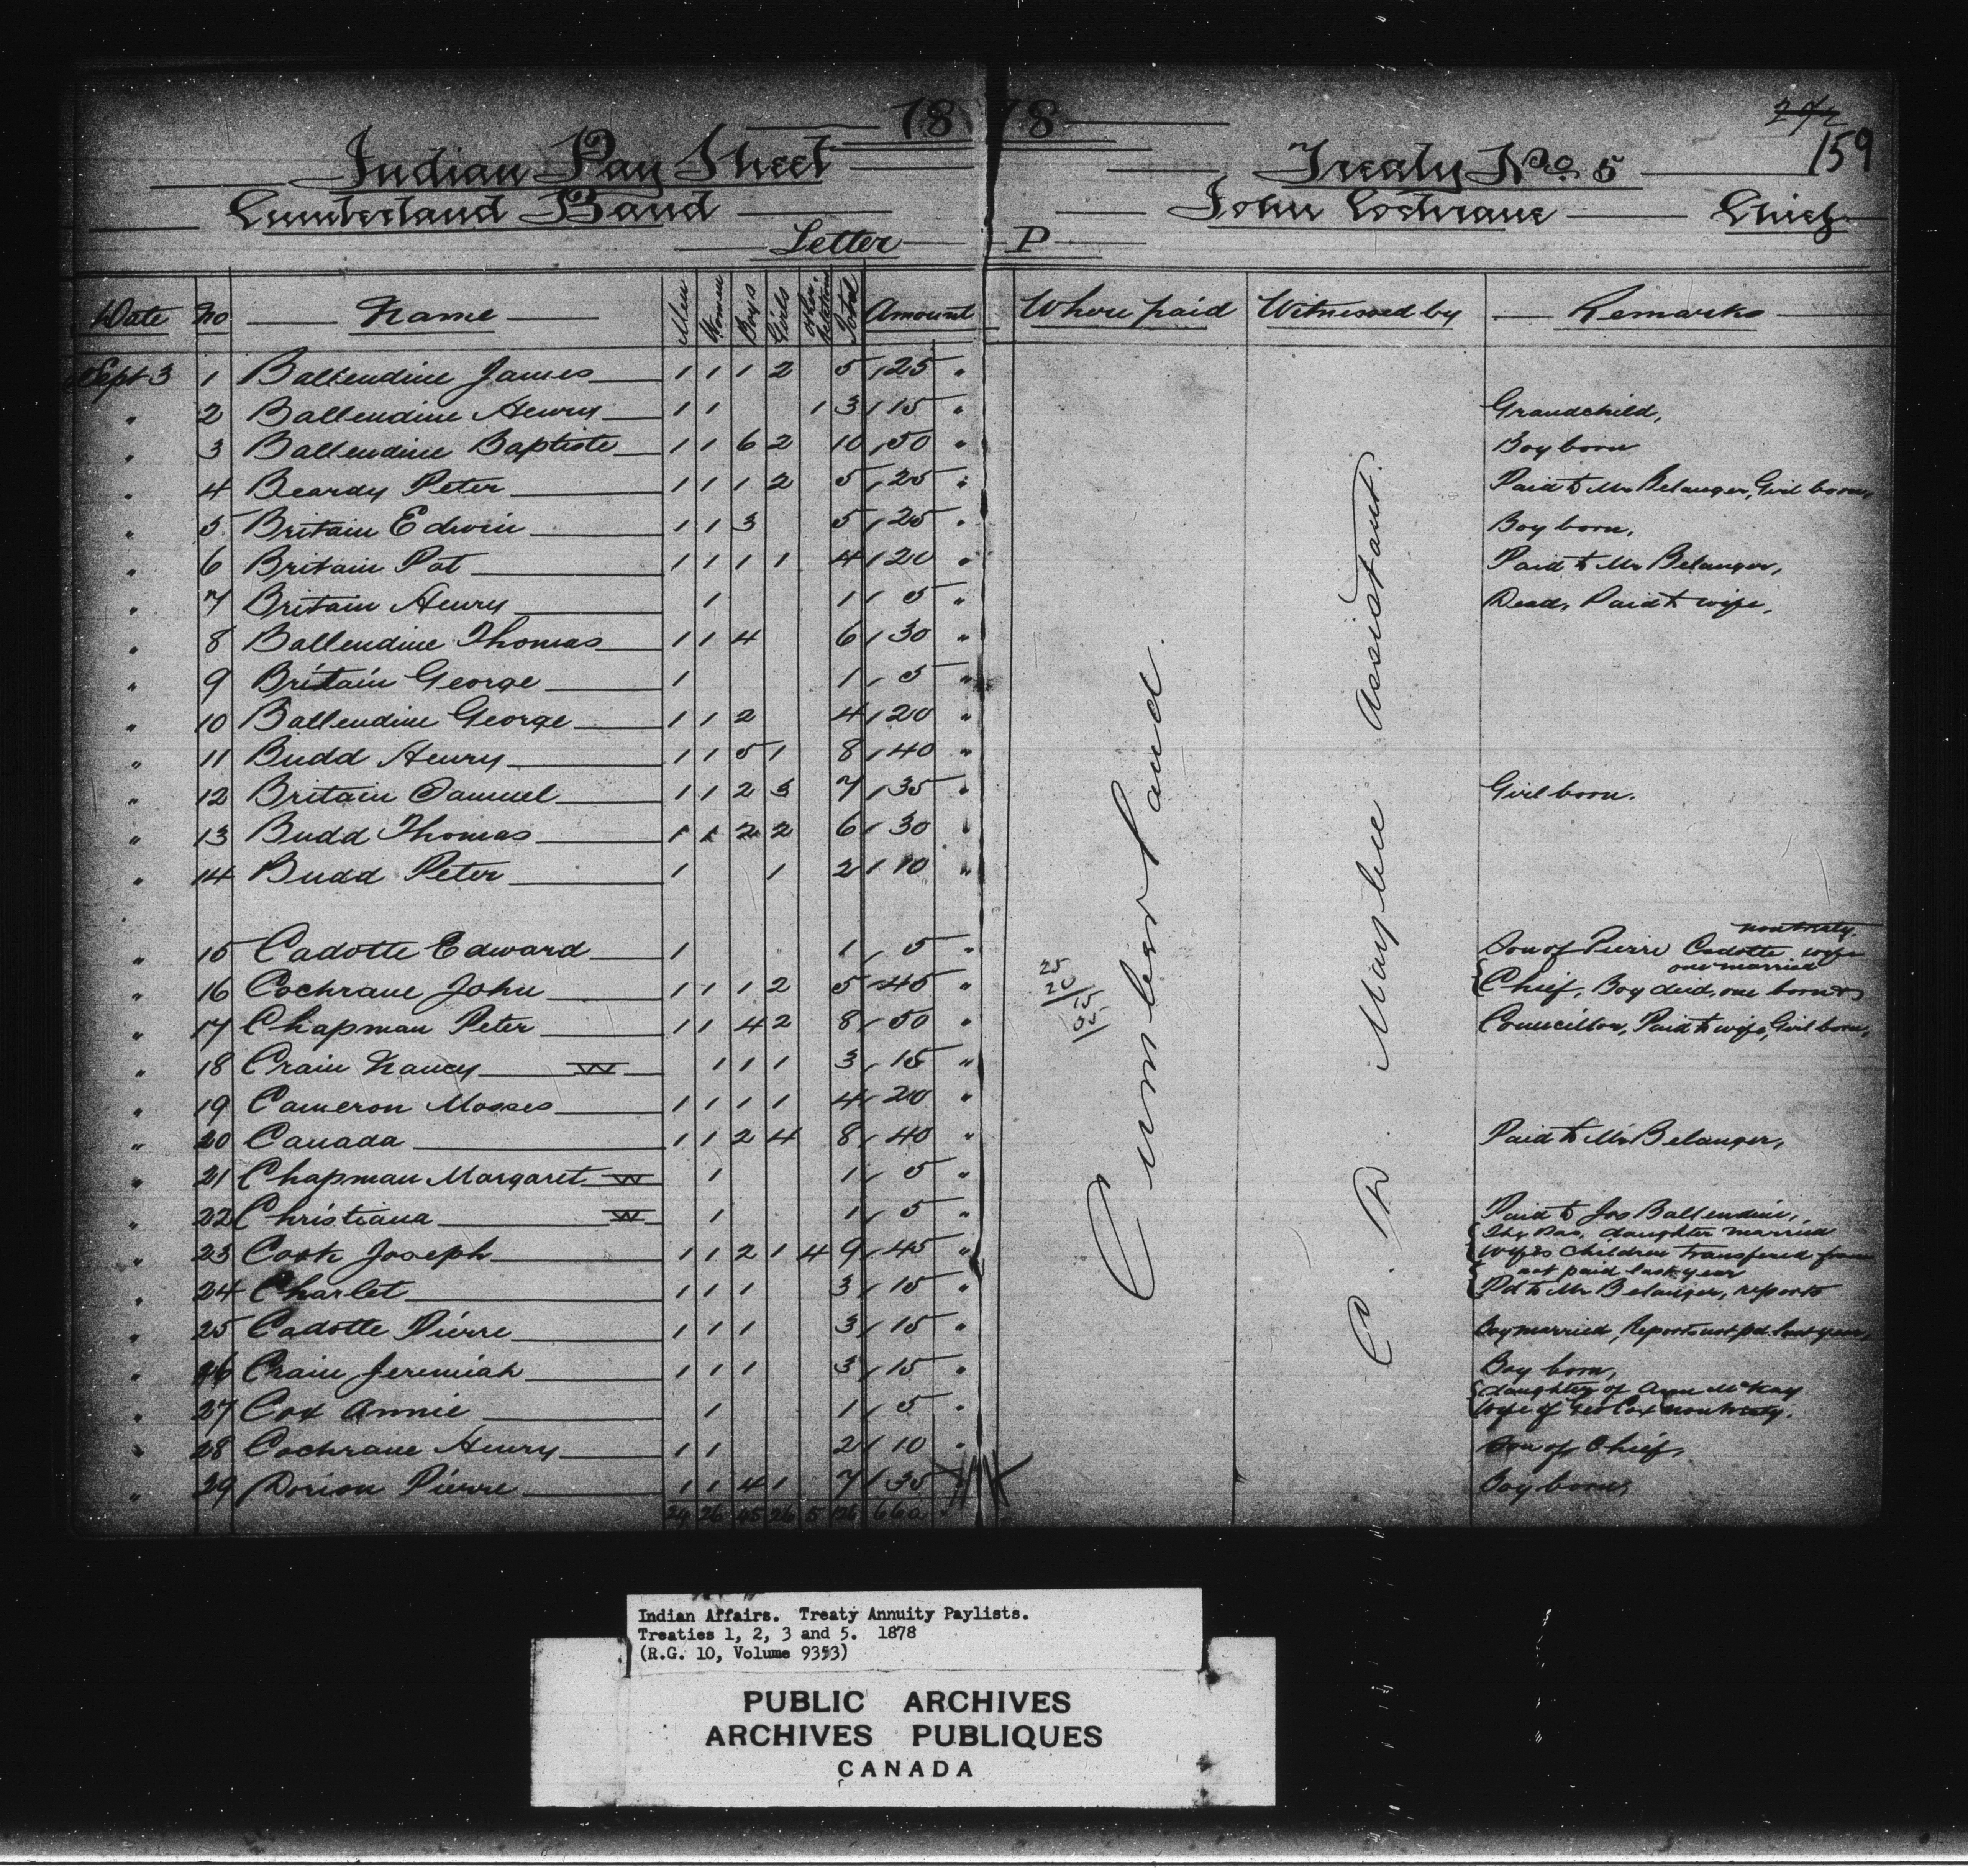 1878
274
159
Indian Pay Sheet Treaty No. 5
Cumberland Band John Cochrane Chief
Letter P
Date No Name Men Women Boys Girls Other Relations Total Amount Where paid Witnessed by Remarks
Sept 3 1 Ballendine James 1 1 1 2 5 25 "
" 2 Ballendine Henry 1 1 1 3 15 " Grandchild,
" 3 Ballendine Baptiste 1 1 6 2 10 50 " Boy born
" 4 Beardy Peter 1 1 1 2 5 25 " Paid to Mr Belanger, Girl born,
" 5 Britain Edwin 1 1 3 5 25 " Boy born,
" 6 Britain Pat 1 1 1 1 4 20 " Paid to Mr Belanger,
" 7 Britain Henry 1 1 5 " Dead, Paid to wife,
" 8 Ballendine Thomas 1 1 4 6 30 "
" 9 Britain George 1 1 5 "
" 10 Ballendine George 1 1 2 4 20 "
" 11 Budd Henry 1 1 5 1 8 40 "
" 12 Britain Samuel 1 1 2 3 7 35 " Girl born.
" 13 Budd Thomas 1 1 2 2 6 30 "
" 14 Budd Peter 1 1 2 10 "
non treaty.
" 15 Cadotte Edward 1 1 5 " Son of Pierre Cadotte wife
one married
" 16 Cochrane John 1 1 1 2 5 45 " Chief, Boy died, one born &
" 17 Chapman Peter 1 1 4 2 8 50 " Councillor, Paid to wife, Girl born,
" 18 Crain Nancy W 1 1 1 3 15 "
" 19 Cameron Mosses 1 1 1 1 4 20 "
" 20 Canada 1 1 2 4 8 40 " Paid to Mr Belanger,
" 21 Chapman Margaret W 1 1 5 "
" 22 Christiana W 1 1 5 " Paid to Jos Ballendine,
The Pas, daughter married
" 23 Cook Joseph 1 1 2 1 4 9 45 " Wife's children transfered from
not paid last year
" 24 Charlet 1 1 1 3 15 " Pd to Mr Belanger, reports
" 25 Cadotte Pierre 1 1 1 3 15 " Boy married, Reports not pd. last year,
" 26 Crain Jeremiah 1 1 1 3 15 " Boy born,
daughter of Ann McKay
" 27 Cox Annie 1 1 5 " Wife of Geo Cox non treaty.
" 28 Cochrane Henry 1 1 2 10 " Son of Chief,
" 29 Dorion Pierre 1 1 4 1 7 35 Boy born,
24 26 45 26 5 126 660
25
20
Cumberland.
C. P. Mayhew Assistant.
Indian Affairs. Treaty Annuity Paylists.
Treaties 1, 2, 3 and 5. 1878
(R.G. 10, Volume 9353)
PUBLIC ARCHIVES
ARCHIVES PUBLIQUES
CANADA